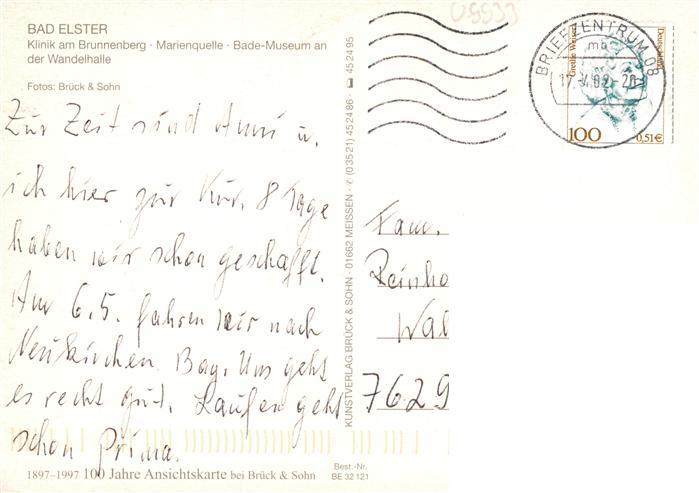 BAD ELSTER
Klinik am Brunnenberg · Marienquelle · Bade-Museum an
der Wandelhalle
Fotos: Brück & Sohn
Zur Zeit sind Anni u.
ich hier zur Kur. 8 Tage
haben wir schon geschafft.
Am 6.5. fahren wir nach
Neukirchen Bay. Uns geht
es recht gut. Laufen geht
schon prima.
1897–1997 100 Jahre Ansichtskarte bei Brück & Sohn
Best.-Nr.
BE 32 121
KUNSTVERLAG BRÜCK & SOHN · 01662 MEISSEN · ✆ (0 35 21) 45 24 86 · 45 24 95
U5533
BRIEFZENTRUM 08
mb
17.-4.02-20
Grethe Weiser
Deutschland
100
0,51€
Fam.
Reinho
Wal
7629